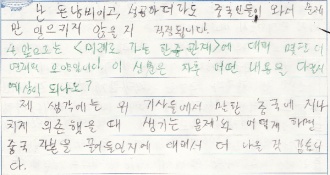 난 돈낭비이고, 성공하더라도 중국인들이 와서 문제
만 일으키지 않을지 걱정됩니다.
4. 앞으로는 <미래로 가는 한중관계>에 대해 연달
연재될 모양입니다. 이 신문은 차후 어떤 내용을 다룰지
예상이 되나요?
제 생각에는 위 기사들에서 말한 '중국에 지나
치게 의존했을 때 생기는 문제'와 어떻게 하면
중국 자본을 끌어들일지에 대해서 더 나올 것 같습니
다.